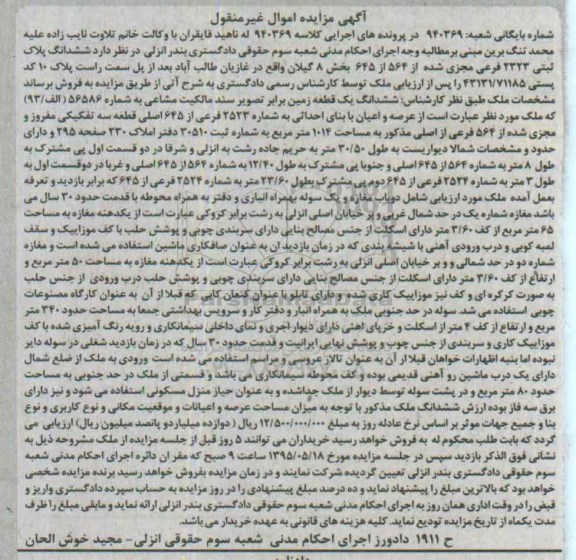 آگهی مزایده اموال غیرمنقول
شماره بایگانی شعبه: ۹۴۰۳۶۹ در پرونده های اجرایی کلاسه ۹۴۰۳۶۹ له ناهید قایقران با وکالت خانم تلاوت نایب زاده علیه
محمد تنگ برین مبنی برمطالبه وجه اجرای احکام مدنی شعبه سوم حقوقی دادگستری بندر انزلی در نظر دارد ششدانگ پلاک
ثبتی ۲۳۲۳ فرعی مجزی شده از ۵۶۴ از ۶۴۵ بخش ۸ گیلان واقع در غازیان طالب آباد بعد از پل سمت راست پلاک ۱۰ کد
پستی ۴۳۱۳۱/۷۱۱۸۵ را پس از ارزیابی ملک توسط کارشناس رسمی دادگستری به شرح آتی از طریق مزایده به فروش برساند
مشخصات ملک طبق نظر کارشناس: ششدانگ یک قطعه زمین برابر تصویر سند مالکیت مشاعی به شماره ۵۶۵۸۶ (الف/۹۳)
که ملک مورد نظر عبارت است از عرصه و اعیان با بنای احداثی به شماره ۲۵۲۳ فرعی از ۶۴۵ اصلی قطعه سه تفکیکی مفروز و
مجزی شده از ۵۶۴ فرعی از اصلی مذکور به مساحت ۱۰۱۴ متر مربع به شماره ثبت ۳۰۵۱۰ دفتر املاک ۲۳۰ صفحه ۲۹۵ و دارای
حدود و مشخصات شمالا دیواریست به طول ۳۰/۵۰ متر به حریم جاده رشت به انزلی و شرقا در دو قسمت اول پی مشترک به
طول ۸ متر به شماره ۵۶۴ از ۶۴۵ اصلی و جنوبا پی مشترک به طول ۱۲/۴۰ به شماره ۵۶۴ از ۶۴۵ اصلی و غربا در دوقسمت اول به
طول ۳ متر به شماره ۲۵۲۴ فرعی از ۶۴۵ دوم پی مشترک بطول ۲۳/۶۰ متر به شماره ۲۵۲۴ فرعی از ۶۴۵ که برابر بازدید و تعرفه
بعمل آمده ملک مورد ارزیابی شامل دوباب مغازه و یک سوله بهمراه انباری و دفتر به همراه محوطه با قدمت حدود ۳۰ سال می
باشد مغازه شماره یک در حد شمال غربی و بر خیابان اصلی انزلی به رشت برابر کروکی عبارت است از یکدهنه مغازه به مساحت
۶۵ متر مربع از کف ۳/۶۰ متر دارای اسکلت از جنس مصالح بنایی دارای سربندی چوبی و پوشش حلب با کف موزاییک و سقف
لمبه کوبی و درب ورودی آهنی با شیشه بندی که در زمان بازدید از آن به عنوان صافکاری ماشین استفاده می شده است و مغازه
شماره دو در حد شمالی و بر خیابان اصلی انزلی به رشت برابر کروکی عبارت است از یکدهنه مغازه به مساحت ۵۰ متر مربع و
ارتفاع از کف ۳/۶۰ متر دارای اسکلت از جنس مصالح بنایی دارای سربندی چوبی و پوشش حلب درب ورودی از جنس حلب
به صورت کرکره ای و کف نیز موزاییک کاری شده و دارای تابلو با عنوان کتمان کابین که قبلا از آن به عنوان کارگاه مصنوعات
چوبی استفاده می شد. سوله در حد جنوبی ملک به همراه انبار و دفتر کار و سرویس بهداشتی جمعا به مساحت حدود ۳۴۰ متر
مربع و ارتفاع از کف ۴ متر از اسکلت و خرپای آهنی دارای دیوار آجری و نمای داخلی سیمانکاری و رویه رنگ آمیزی شده با کف
موزاییک کاری و سربندی از جنس چوب و پوشش نهایی ایرانیت و قدمت حدود ۳۰ سال که در زمان بازدید شغلی در سوله دایر
نبوده اما بنابه اظهارات خواهان قبلا از آن به عنوان تالار عروسی و مراسم استفاده می شده است ورودی به ملک از ضلع شمال
دارای یک درب ماشین رو آهنی قدیمی بوده و کف محوطه سیمانکاری می باشد و قسمتی از ملک در حد جنوبی به مساحت
حدود ۸۰ متر مربع و در پشت سوله توسط دیوار از ملک جداشده و به عنوان حیاز منزل مسکونی استفاده می شود و نیز دارای
برق سه فاز بوده ارزش ششدانگ ملک مذکور با توجه به میزان مساحت عرصه و اعیانات و موقعیت مکانی و نوع کاربری و نوع
بنا و جمیع جهات موثر بر اساس نرخ عادله روز به مبلغ ۱۲/۵۰۰/۰۰۰/۰۰۰ ریال ( دوازده میلیاردو پانصد میلیون ریال) ارزیابی می
گردد که بابت طلب محکوم له به فروش خواهد رسید خریداران می توانند ۵ روز قبل از جلسه مزایده از ملک مشروحه ذیل به
نشانی فوق الذکر بازدید سپس در جلسه مزایده مورخ ۱۳۹۵/۰۵/۱۸ ساعت ۹ صبح که مقر آن دائره اجرای احکام مدنی شعبه
سوم حقوقی دادگستری بندر انزلی تعیین گردیده شرکت نمایند و در زمان مزایده بفروش خواهد رسید برنده مزایده شخصی
خواهد بود که بالاترین مبلغ را پیشنهاد نماید و ده درصد مبلغ پیشنهادی را در روز مزایده به حساب سپرده دادگستری واریز و
قبض را در وقت اداری همان روز به اجرای احکام مدنی شعبه سوم حقوقی دادگستری بندر انزلی ارائه نماید و مابقی مبلغ را ظرف
مدت یکماه از تاریخ مزایده تودیع نماید. کلیه هزینه های قانونی به عهده خریدار می باشد.
ح ۱۹۱۱ دادورز اجرای احکام مدنی شعبه سوم حقوقی انزلی- مجید خوش الحان